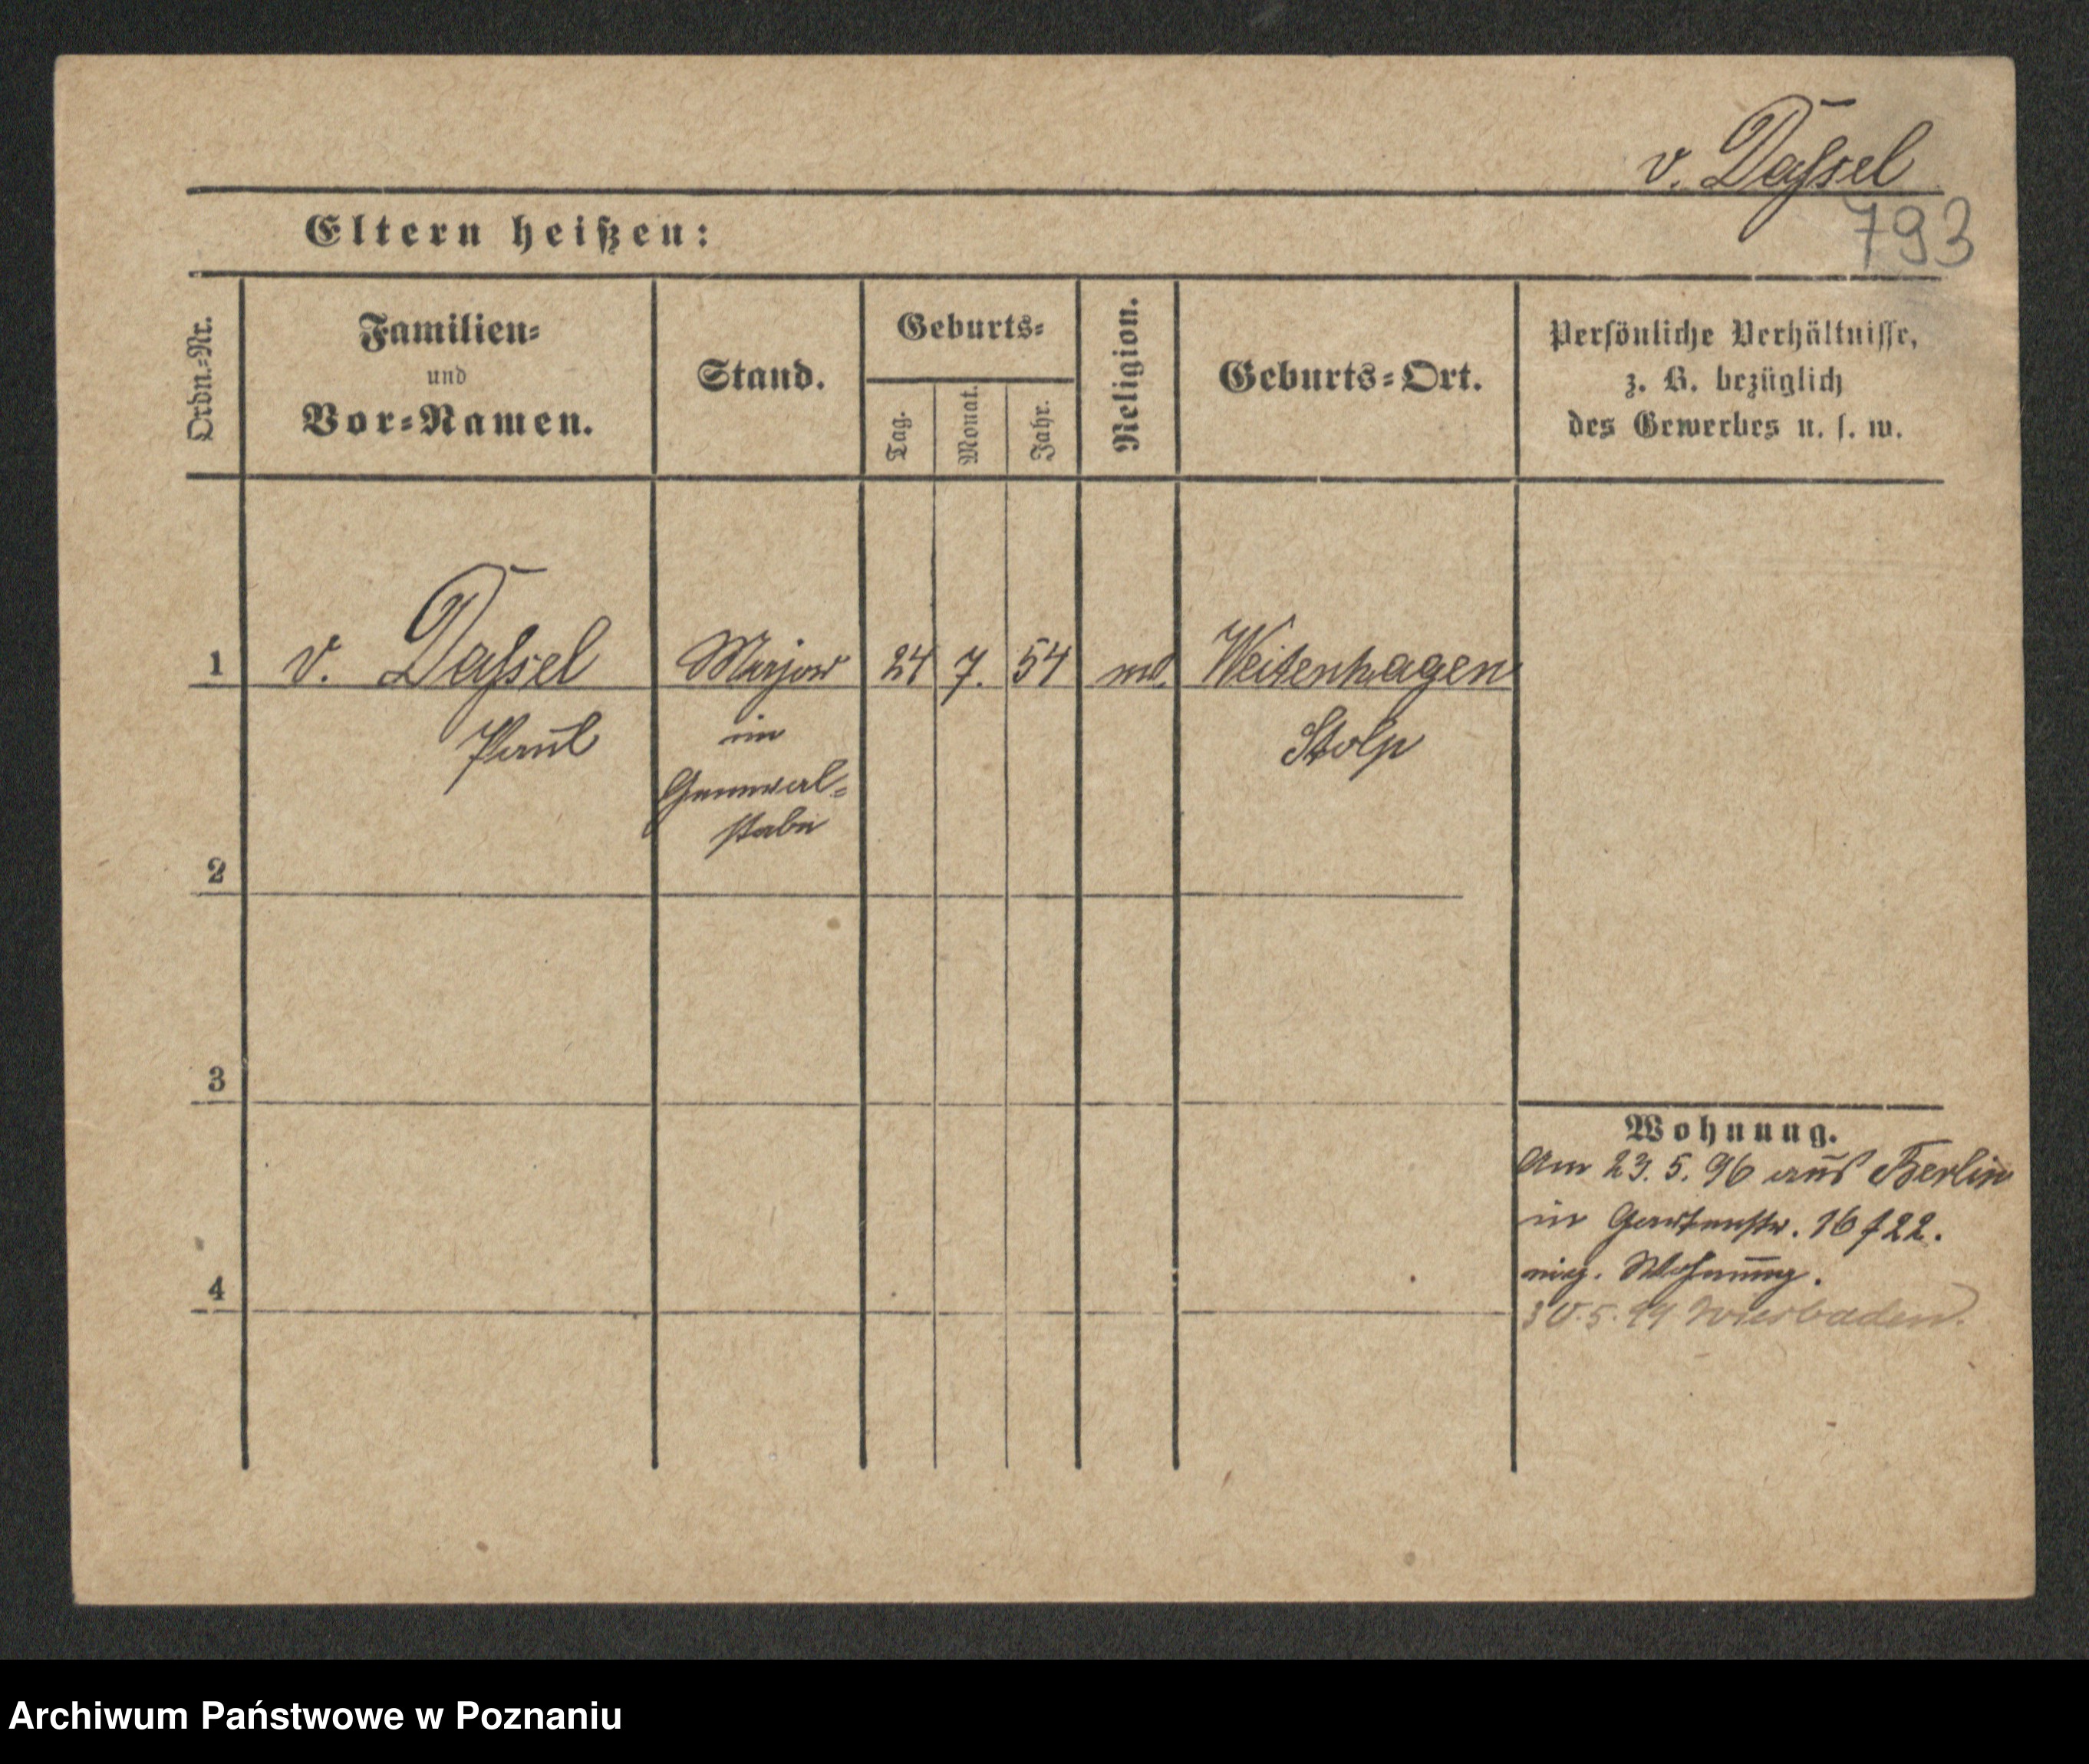 v. Daſsel
793
Eltern heißen:
Ordn.-Nr.
Familien-
und
Vor-Namen.
Stand.
Geburts-
Tag.
Monat.
Jahr.
Religion.
Geburts-Ort.
Persönliche Verhältnisse,
z. B. bezüglich
des Gewerbes u. s. w.
1 v. Daſsel Major 24 7. 54 Weitenhagen
Paul im Stolp
General-
stabe
2
3
4
Wohnung.
Am 23. 5. 96 aus Berlin
in Gartenstr. 16 f 22.
eig. Wohnung.
30.5.99 Wiesbaden.
Archiwum Państwowe w Poznaniu